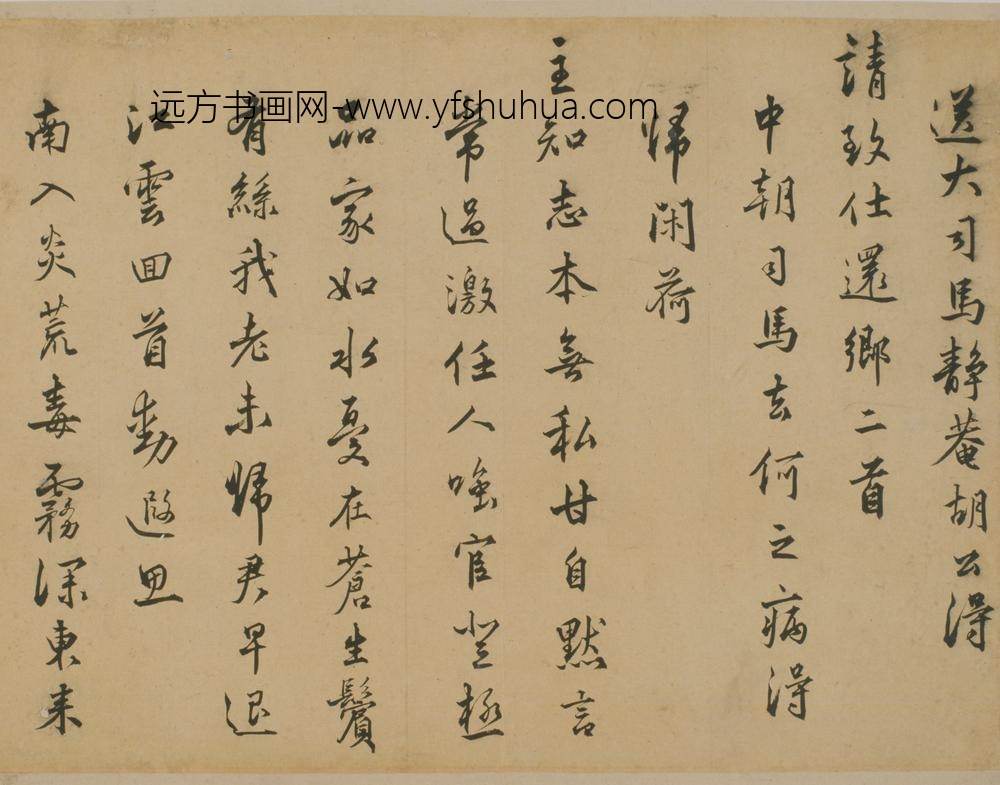 送大司馬静菴胡公得
請致仕還鄉二首
中朝司馬去何之病得
歸閑荷
主知志本無私甘自默言
常過激任人嗤官登極
品家如水憂在蒼生鬢
有絲我老未歸君早退
江雲回首動遐思
南入炎荒毒霧深東来
远方书画网-www.yfshuhua.com